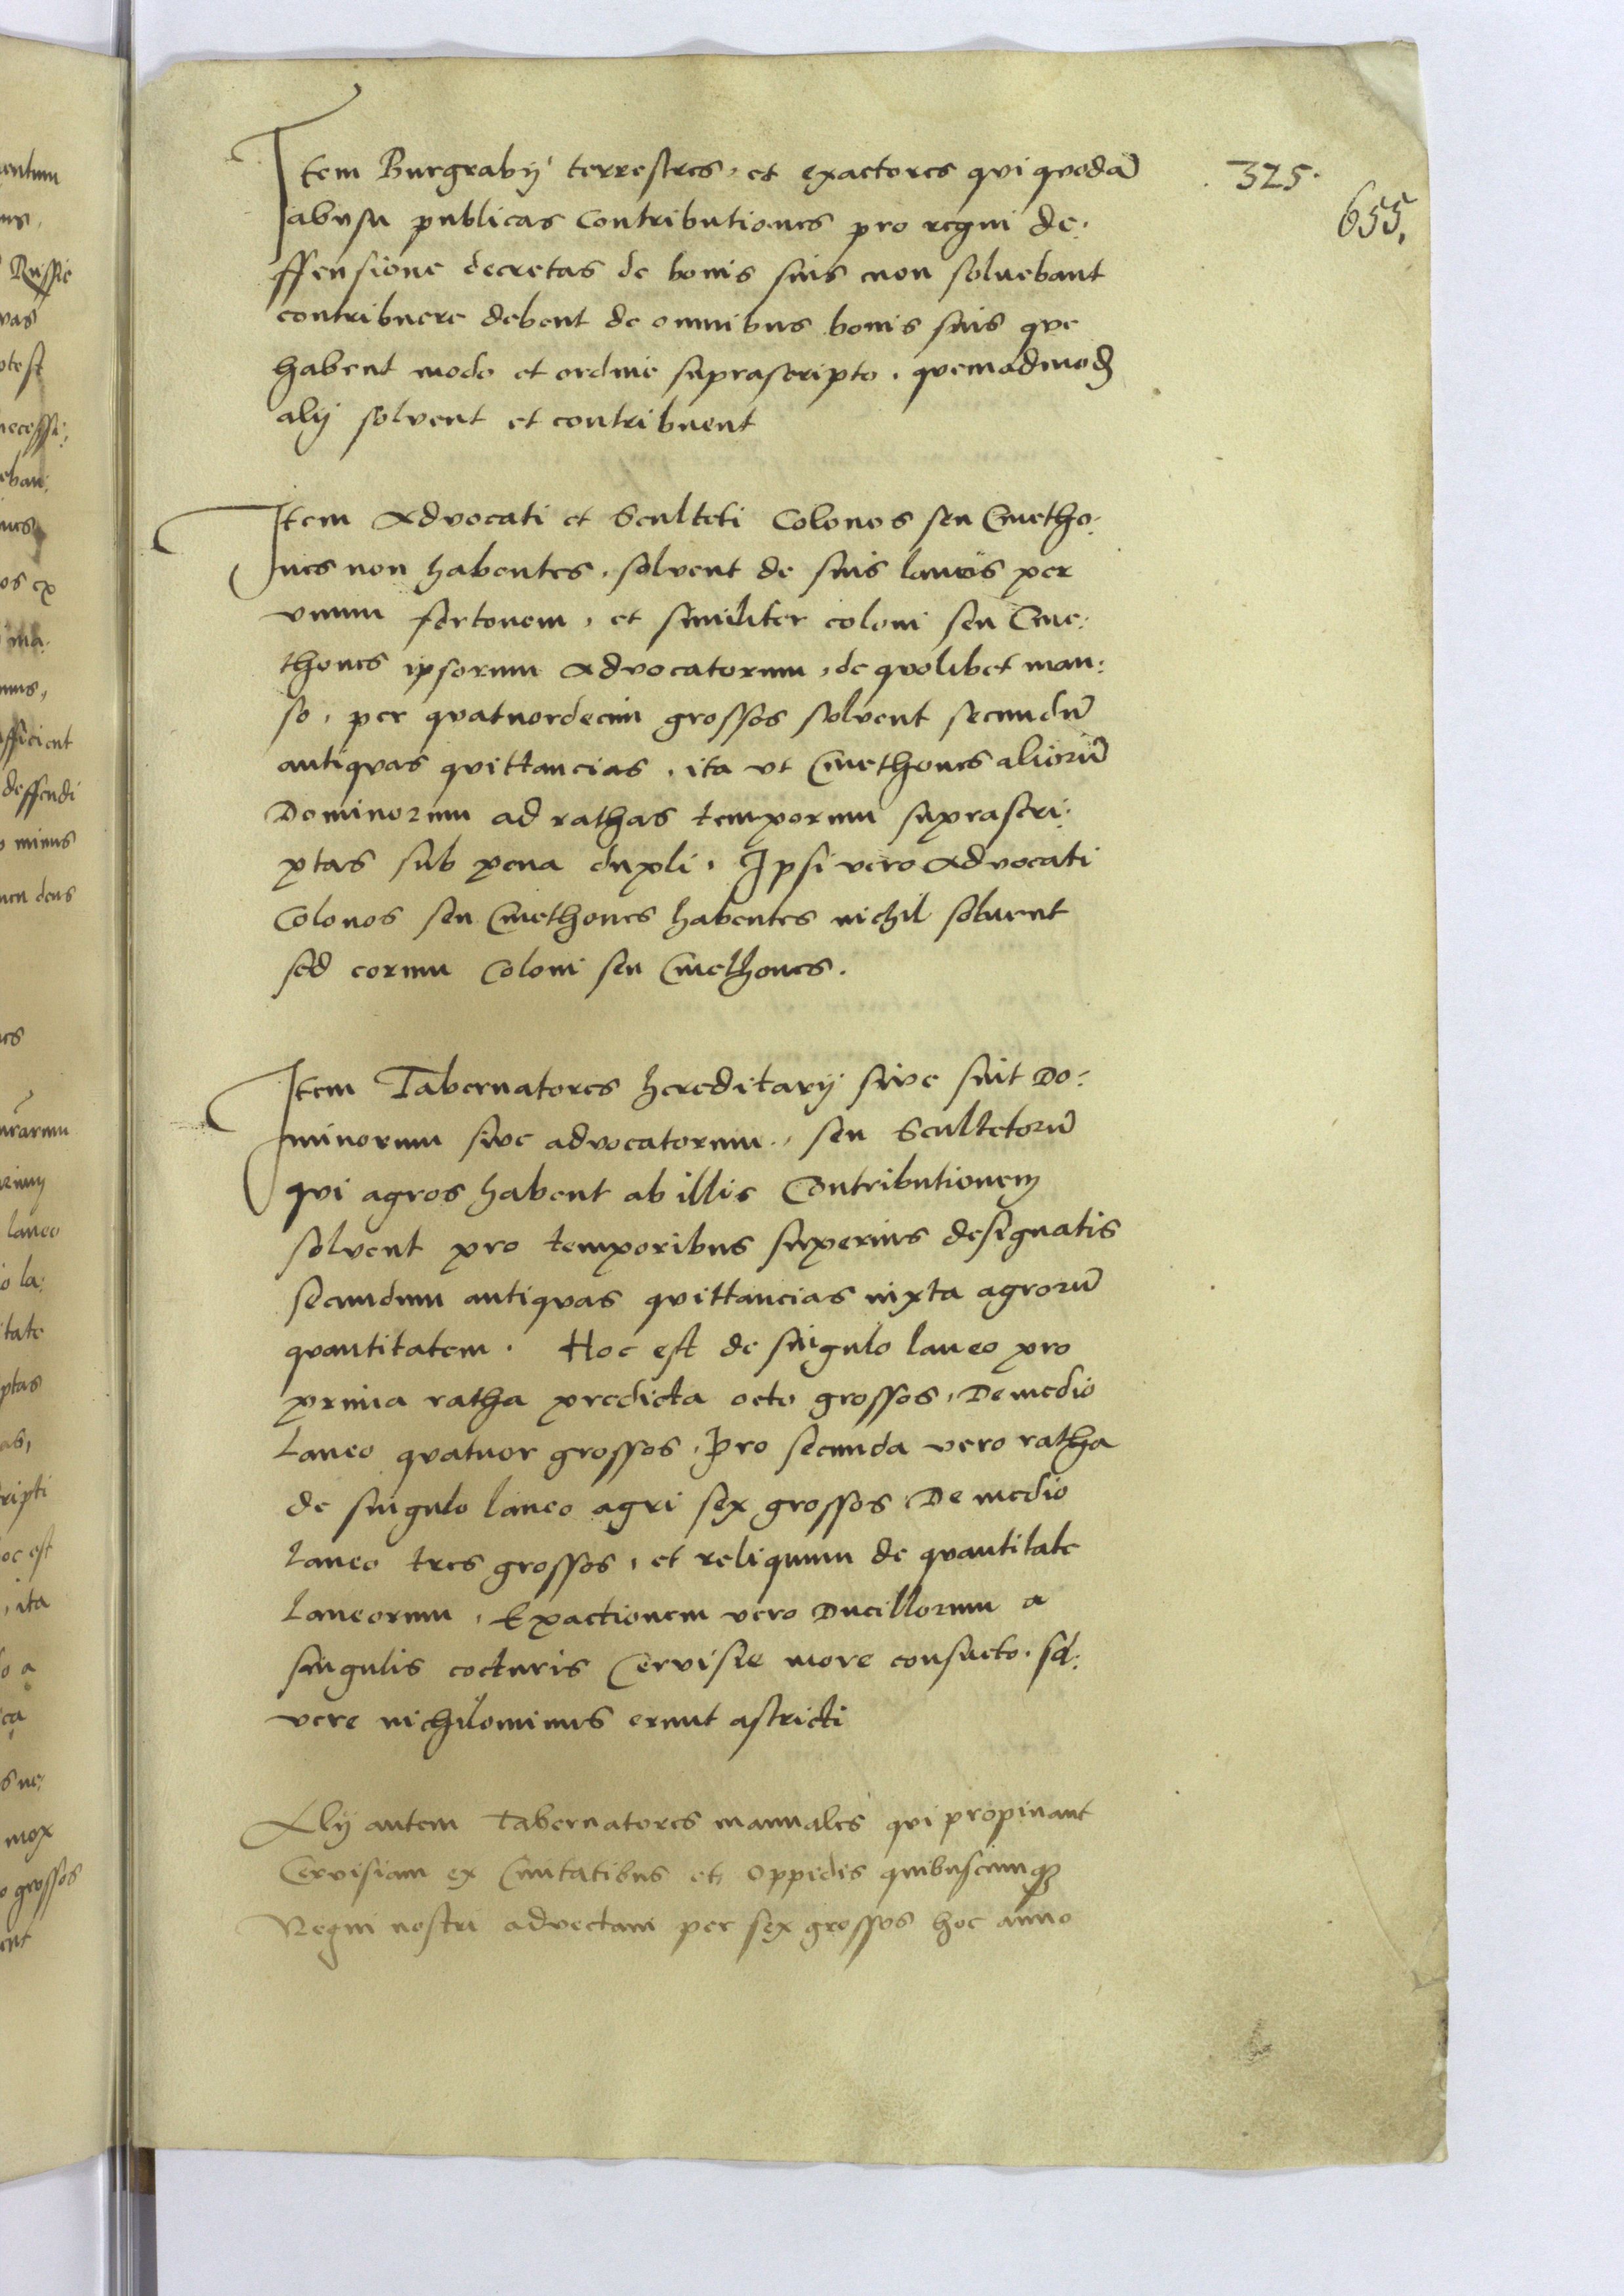 325.
655.
Item Burgrabij terrestres, et exactores qui quodā
abusu publicas Contributiones pro regni de:
ffensione decretas de bonis suis non soluebant
contribuere debent de omnibus bonis suis que
habent modo et ordine suprascripto. quemadmodȝ
alij solvent et contribuent
Item Advocati et Sculteti Colonos seu Cmetho:
nes non habentes, solvent de suis laneis per
vnum fertonem, et similiter coloni seu Cme:
thones ipsorum Advocatorum, de quolibet man:
so, per quatuordecim grossos solvent secundū
antiquas quittancias, ita vt Cmethones aliorū
Dominorum ad rathas temporum suprascri:
ptas sub pena dupli. Ipsi vero Advocati
Colonos seu Cmethones habentes nichil soluent
sed eorum Coloni seu Cmethones.
Item Tabernatores hereditarij sive sint Do:
minorum sive advocatorum, seu Scultetorū
qui agros habent ab illis Contributionem
solvent pro temporibus superius designatis
secundum antiquas quittancias iuxta agrorū
quantitatem. Hoc est de singulo laneo pro
prima ratha predicta octo grossos, De medio
Laneo quatuor grossos, Pro secunda vero ratha
de singulo laneo agri sex grossos De medio
Laneo tres grossos, et reliquum de quantitate
Laneorum, Exactionem vero Ducillorum a
singulis cocturis Cervisie more consueto. sol:
vere nichilominus erunt astricti
Alij autem Tabernatores manuales qui propinant
Cervisiam ex Civitatibus et oppidis quibuscumqȝ
Regni nostri advectam per sex grossos hoc anno
entum
Russie
vas
otest
necessi:
eban:
nes
os ex
ma:
mus,
fficient
deffendi
o minus
laneo
o la:
itate
ptas
as,
ripti
oc est
, ita
o a
ca
s ne:
mox
o grossos
ent